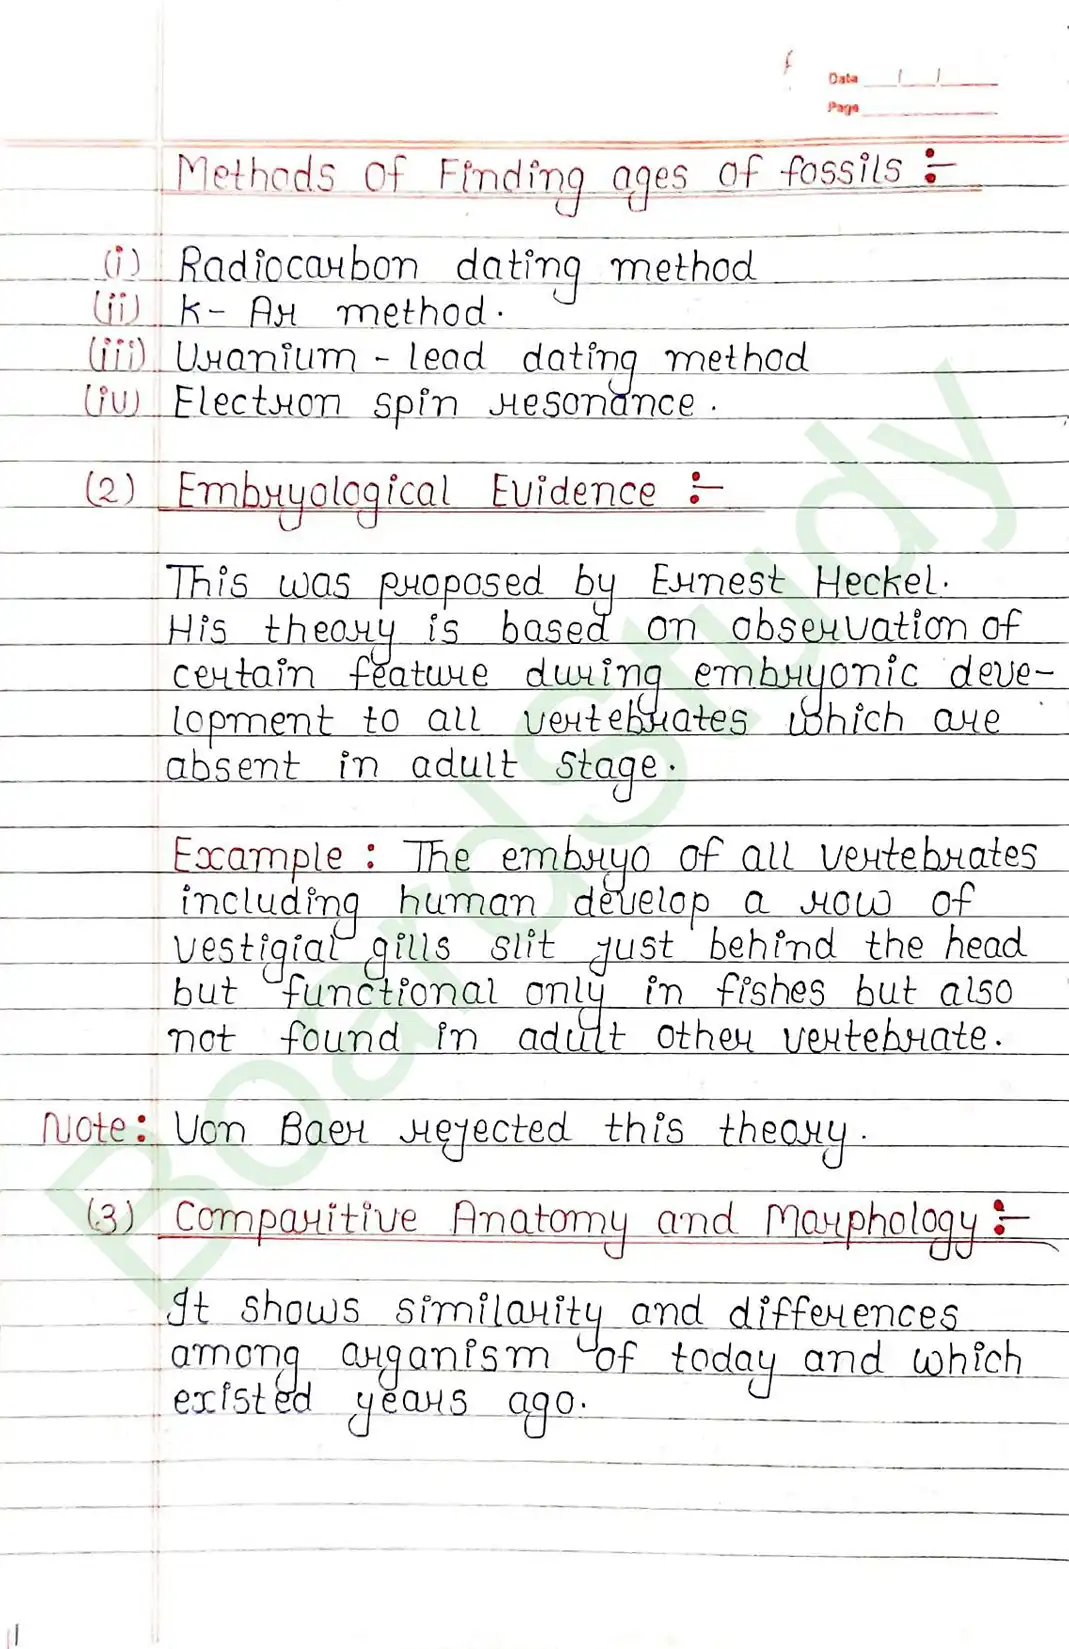 Date / /
Page
Methods of Finding ages of fossils :-
(i) Radiocarbon dating method
(ii) K- Ar method.
(iii) Uranium - lead dating method
(iv) Electron spin resonance.
(2) Embryological Evidence :-
This was proposed by Ernest Heckel.
His theory is based on observation of
certain feature during embryonic deve-
lopment to all vertebrates which are
absent in adult stage.
Example : The embryo of all vertebrates
including human develop a row of
vestigial gills slit just behind the head
but functional only in fishes but also
not found in adult other vertebrate.
Note : Von Baer rejected this theory.
(3) Comparitive Anatomy and Morphology :-
It shows similarity and differences
among organism of today and which
existed years ago.
BoardStudy